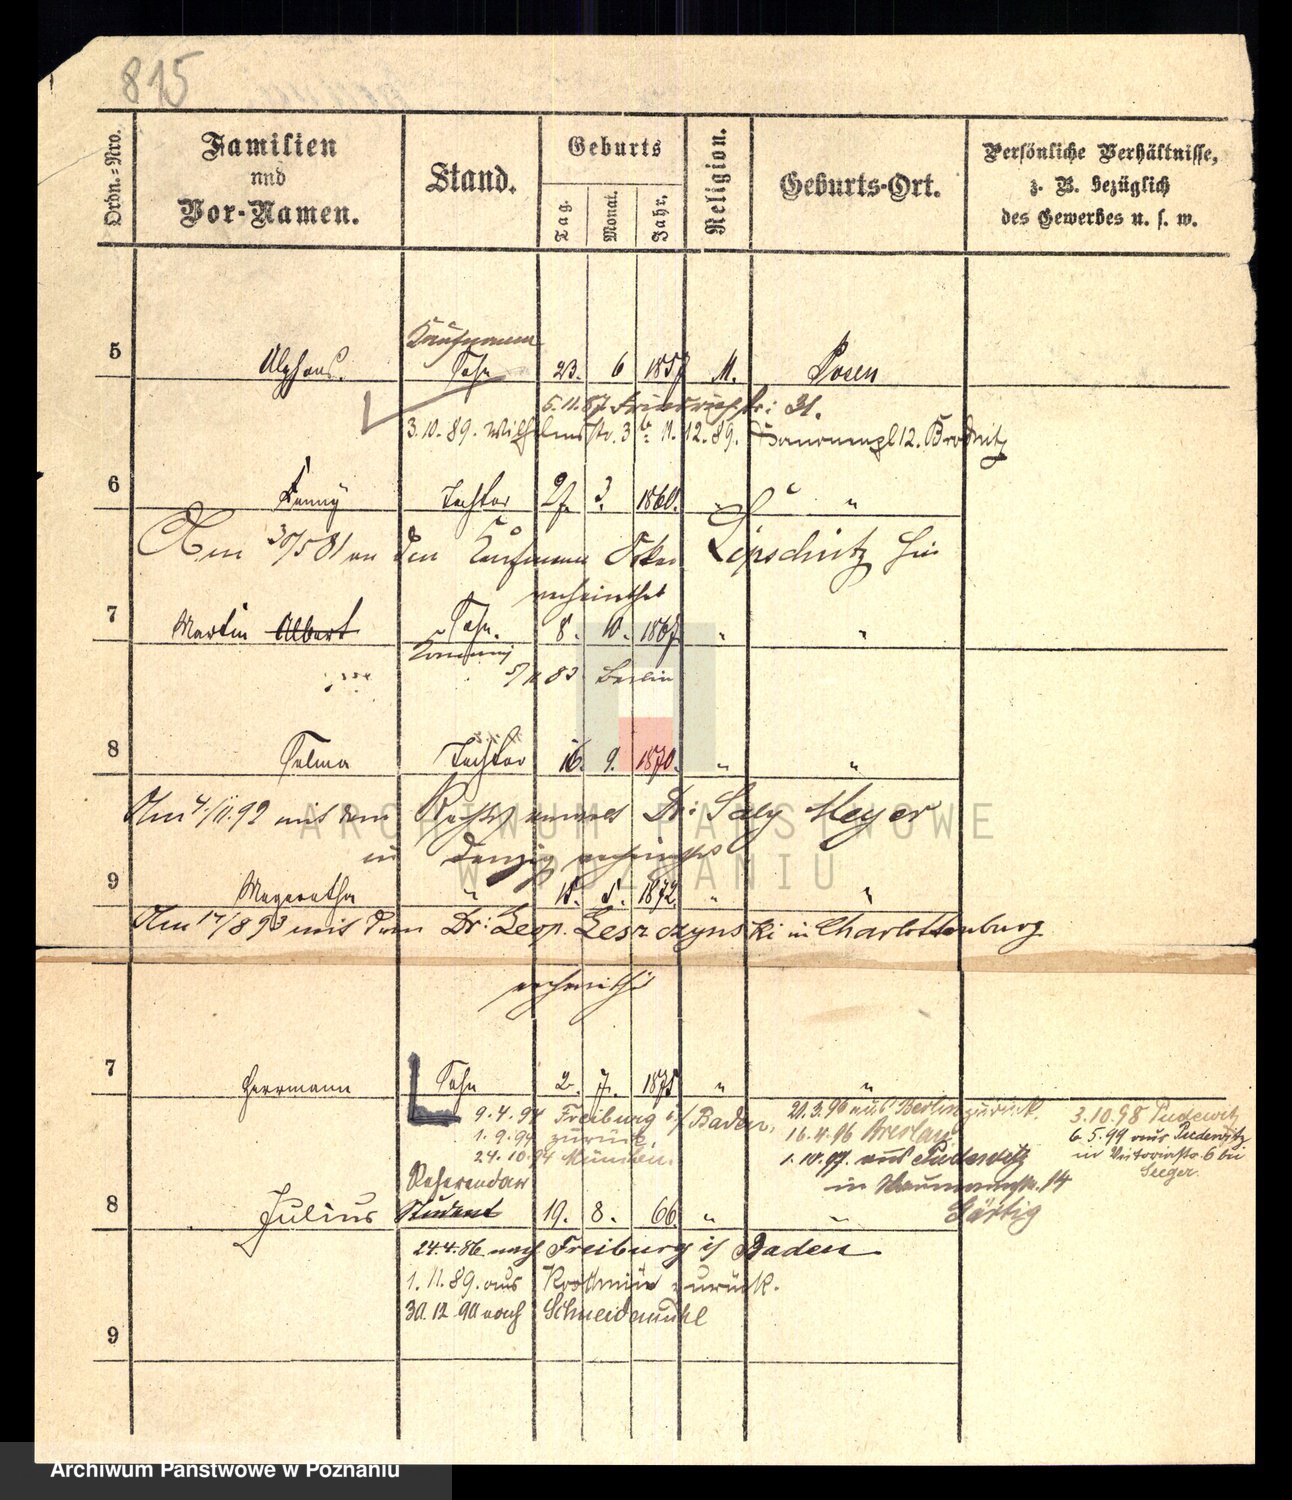 815
Ordn.-Nro.
Familien
und
Vor-Namen.
Stand.
Geburts
Tag.
Monat.
Jahr.
Religion.
Geburts-Ort.
Persönliche Verhältnisse,
z. B. bezüglich
des Gewerbes u. s. w.
Kaufmann
5 Alphons. Sohn 23. 6 1857 M. Posen
5.11.87 Friedrichstr: 31.
3.10.89. Wilhelmstr. 3 11.12.89. 12.
6 Fanny Tochter 27. 3. 1860. "
Am 30/5 81 an den Kaufmann Lipschitz
verheirathet
7 Martin Albert Sohn. 8. 10. 1867 " "
83 Berlin
8 Selma Tochter 16. 9. 1870. " "
Am 4/11.92 mit dem Rechtsanwalt Dr: Saly Meyer
in Danzig verheirathet
9 Margaretha " 15. 5. 1872. " "
Am 17/8 93 mit dem Dr: Leop. Leszczynski in Charlottenburg
7 Herrmann Sohn 2. 7. 1875 " "
9.4.94 Freiburg i/Baden.
1.9.94 zurück.
24.10.94 München.
20.3.96 aus Berlin zurück.
16.4.96 Breslau
1.10.97. aus Pudewitz
in Naumannstr. 14
3.10.98 Pudewitz
6.5.99 aus Pudewitz
in Victoriastr. 6 bei
Seeger.
Referendar
8 Julius Student 19. 8. 66 " "
24.4.86 nach Freiburg i/ Baden
1.11.89. aus zurück.
30.12.90 nach Schneidemühl
9
ARCHIWUM PAŃSTWOWE
W POZNANIU
Archiwum Państwowe w Poznaniu